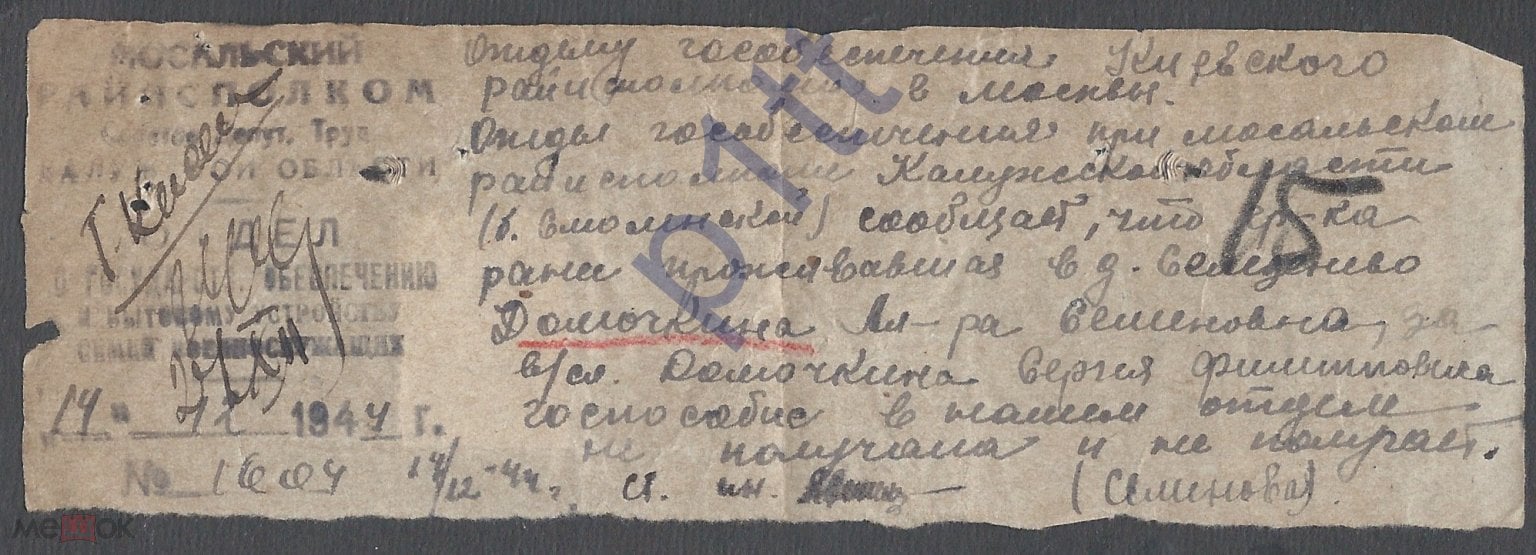 МОСАЛЬСКИЙ
РАЙИСПОЛКОМ
Труд
КАЛУЖСКОЙ ОБЛАСТИ
ОТДЕЛ
О ГОСУДАРСТ ОБЕСПЕЧЕНИЮ
И БЫТОВОМУ УСТРОЙСТВУ
СЕМЕЙ ВОЕННОСЛУЖАЩИХ
"14" 12 1944 г.
№ 1604
Отделу гособеспечения Киевского
райисполкома в Москвы.
Отдел гособеспечения при Мосальском
райисполкоме Калужской области
(б. Смоленской) сообщает, что гр-ка
ранее проживавшая в д.
Домочкина Ал-ра Семеновна, за
в/сл. Домочкина Сергея Филипповича
госпособие в нашем отделе
не получала и не получает.
14/12-44г. ст. ин. (Семинова)
15
p1tt
мешок